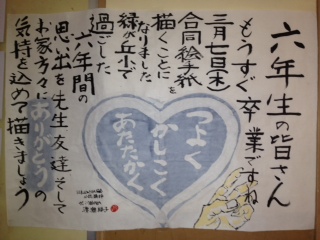 六年生の皆さん
もうすぐ卒業ですね
三月七日(木)
合同絵手紙を
描くことに
なりました
緑が丘小で
過ごした
六年間の
思い出を先生友達そして
お家の方々にありがとうの
気持を込めて描きましょう
つよく
かしこく
あたたかく